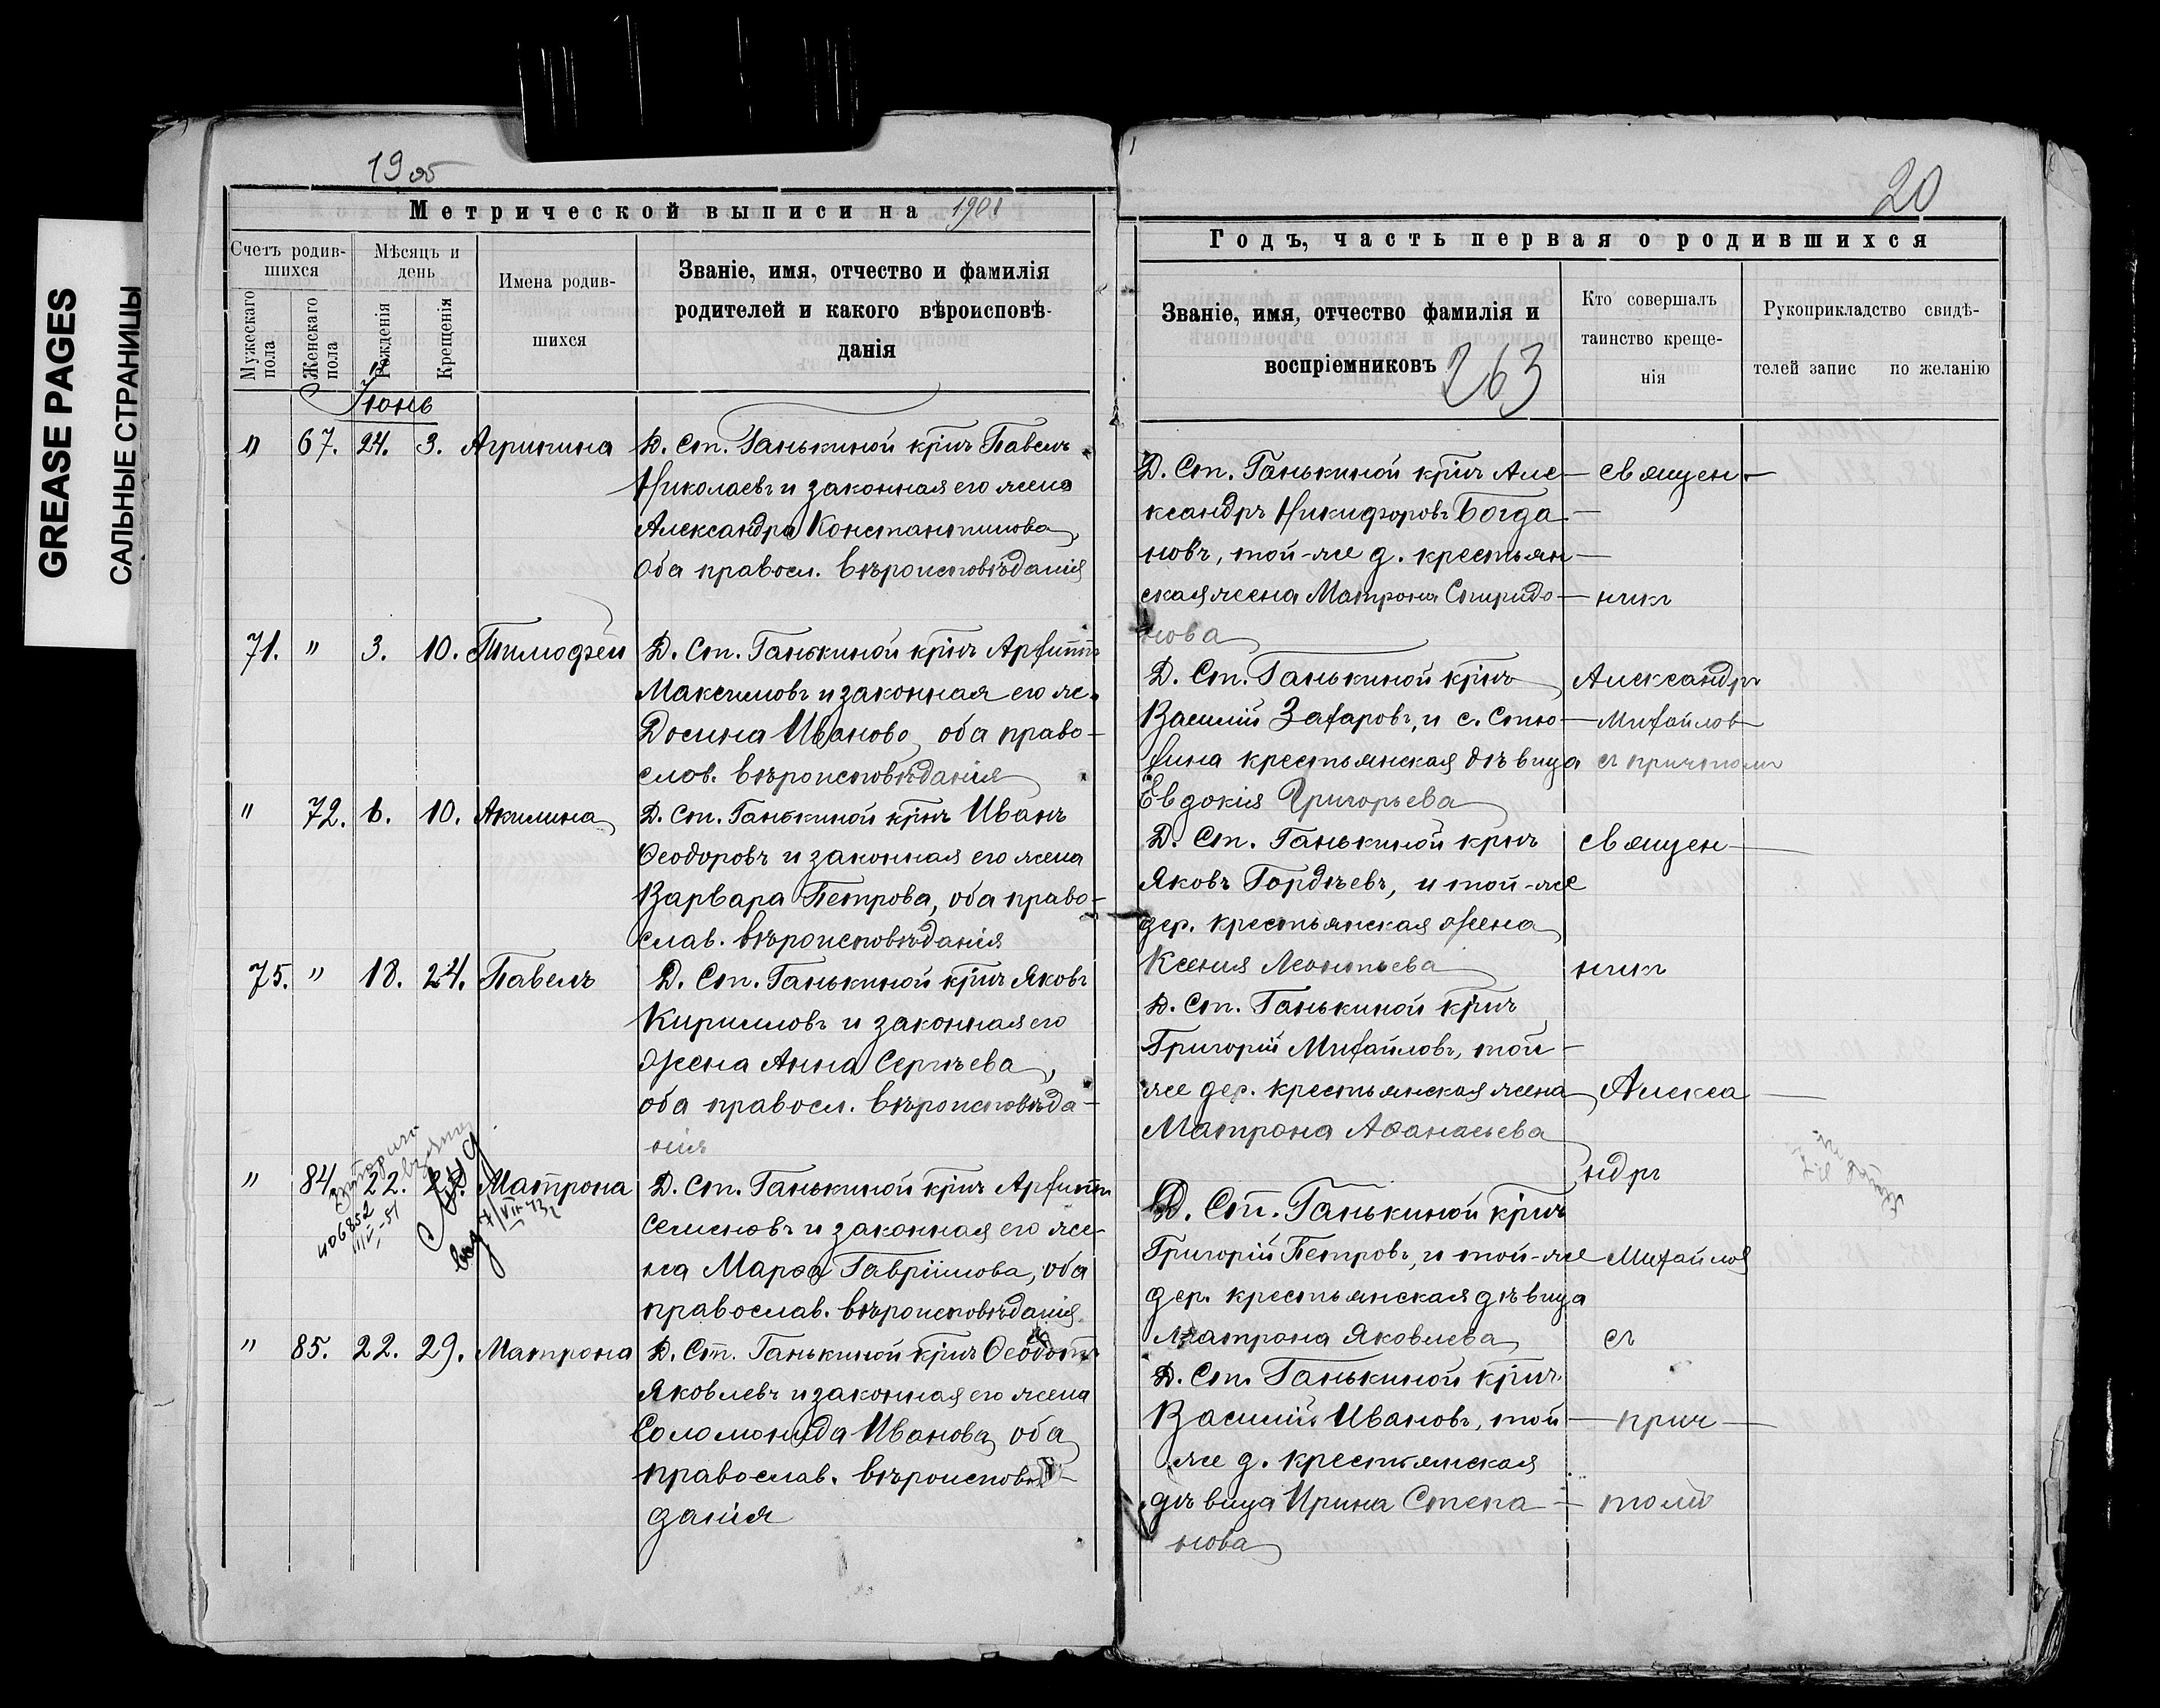 GREASE PAGES
САЛЬНЫЕ СТРАНИЦЫ
19 об
Метрической выписи на 1901
Счетъ родив-
шихся
Мужескаго
пола
Женскаго
пола
Мѣсяцъ и
день
Рожденія
Крещенія
Имена родив-
шихся
Званіе, имя, отчество и фамилія
родителей и какого вѣроисповѣ-
данія
Іюнь
" 67. 24. 3. Агрипина Д. Ст. Ганькиной кр҃нъ Павелъ
Николаевъ и законная его жена
Александра Константинова,
оба правосл. вѣроисповѣданія
71. " 3. 10. Тимофей Д. Ст. Ганькиной кр҃нъ Архиппъ
Максимовъ и законная его же.
Иванова, оба право-
слов. вѣроисповѣданія
" 72. 6. 10. Акилина Д. Ст. Ганькиной кр҃нъ Иванъ
Ѳеодоровъ и законная его жена
Варвара Петрова, оба право-
слав. вѣроисповѣданія
75. " 18. 24. Павелъ Д. Ст. Ганькиной кр҃нъ Яковъ
Кирилловъ и законная его
жена Анна Сергѣева,
оба правосл. вѣроисповѣда-
нія
" 84. 22. Матрона Д. Ст. Ганькиной кр҃нъ Архиппъ
Семеновъ и законная его же-
на Марѳа Гавріилова, оба
православ. вѣроисповѣданія.
" 85. 22. 29. Матрона Д. Ст. Ганькиной кр҃нъ Ѳеодотъ
Яковлевъ и законная его жена
Соломонида Иванова, оба
православ. вѣроисповѣ-
данія
20
Годъ, часть первая о родившихся
Званіе, имя, отчество фамилія и
воспріемниковъ 263
Кто совершалъ
таинство креще-
нія
Рукоприкладство свидѣ-
телей запис по желанію
Д. Ст. Ганькиной кр҃нъ Але- священ-
ксандръ Никифоровъ Богда-
новъ, той-же д. крестьян-
ская жена Матрона Спиридо- никъ
нова
Д. Ст. Ганькиной кр҃нъ Александръ
Василій Захаровъ, и с. Стю- Михайловъ
хина крестьянская дѣвица съ причтомъ
Евдокія Григорьева
Д. Ст. Ганькиной кр҃нъ священ-
Яковъ Гордѣевъ, и той-же
дер. крестьянская жена
Ксенія Леонтьева никъ
Д. Ст. Ганькиной кр҃нъ
Григорій Михайловъ, той-
же дер. крестьянская жена Алекса
Матрона Аѳанасьева
ндръ
Д. Ст. Ганькиной кр҃нъ
Григорій Петровъ, и той-же Михайловъ
дер. крестьянская дѣвица
Матрона Яковлева съ
Д. Ст. Ганькиной кр҃нъ
Василій Ивановъ, той- прич-
же д. крестьянская
дѣвица Ирина Степа- томъ
нова